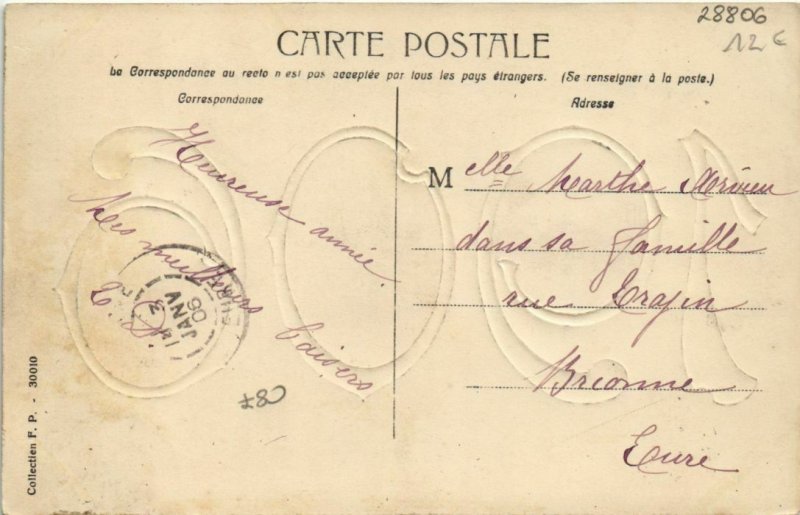 28806
12 €
CARTE POSTALE
La Correspondance au recto n'est pas acceptée par tous les pays étrangers. (Se renseigner à la poste.)
Correspondance
Adresse
Heureuse année.
Mes meilleurs baisers
M elle Marthe
dans sa famille
rue
Brionne
Eure
3
JANV
06
EURE
Collection F. P. - 30010